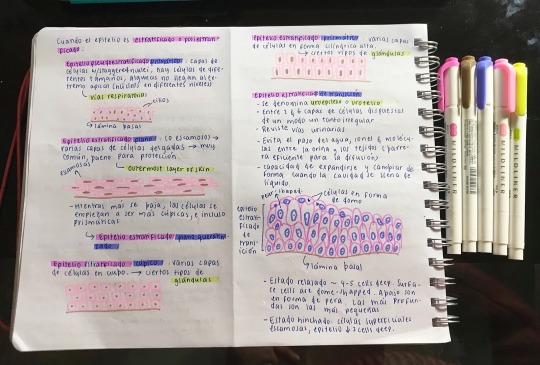 Cuando el epitelio es estratificado o poliestratificado
Epitelio pseudoestratificado prismático: capas de
células w/staggered nuclei, hay células de dife-
rentes tamaños, algunas no llegan al ex-
tremo apical (núcleos en diferentes niveles)
Vías respiratorias
cilios
lámina basal
Epitelio estratificado plano: (o escamoso) →
varias capas de células delgadas → muy
común, bueno para protección.
escamosas
outermost layer of skin
- Mientras más se baja, las células se
empiezan a ser más cúbicas, e incluso
prismáticas
Epitelio estratificado plano queratini-
zado
Epitelio estratificado cúbico: varias capas
de células en cubo → ciertos tipos de
glándulas
Epitelio estratificado prismático: varias capas
de células en forma cilíndrica alta.
→ ciertos tipos de glándulas
Epitelio estratificado de transición:
- Se denomina uroepitelio o urotelio
- Entre 3 y 6 capas de células dispuestas
de un modo un tanto irregular
- Reviste vías urinarias
- Evita el paso del agua, iones y molécu-
las entre la orina y los tejidos (barre-
rra eficiente para la difusión)
- Capacidad de expandirse y cambiar de
forma cuando la cavidad se llena de
líquido
pear-shaped
células en forma
de domo
epitelio
estratifi-
cado de
transi-
ción
lámina basal
- Estado relajado ~ 4-5 cells deep. Surfa-
ce cells are dome-shapped. abajo son
en forma de pera. Las más profun-
das son las más pequeñas
- Estado hinchado: células superficiales
escamosas, epitelio ↓ 3 cells deep.
MILDLINER
MILDLINER
MILDLINER
MILDLINER
MILDLINER